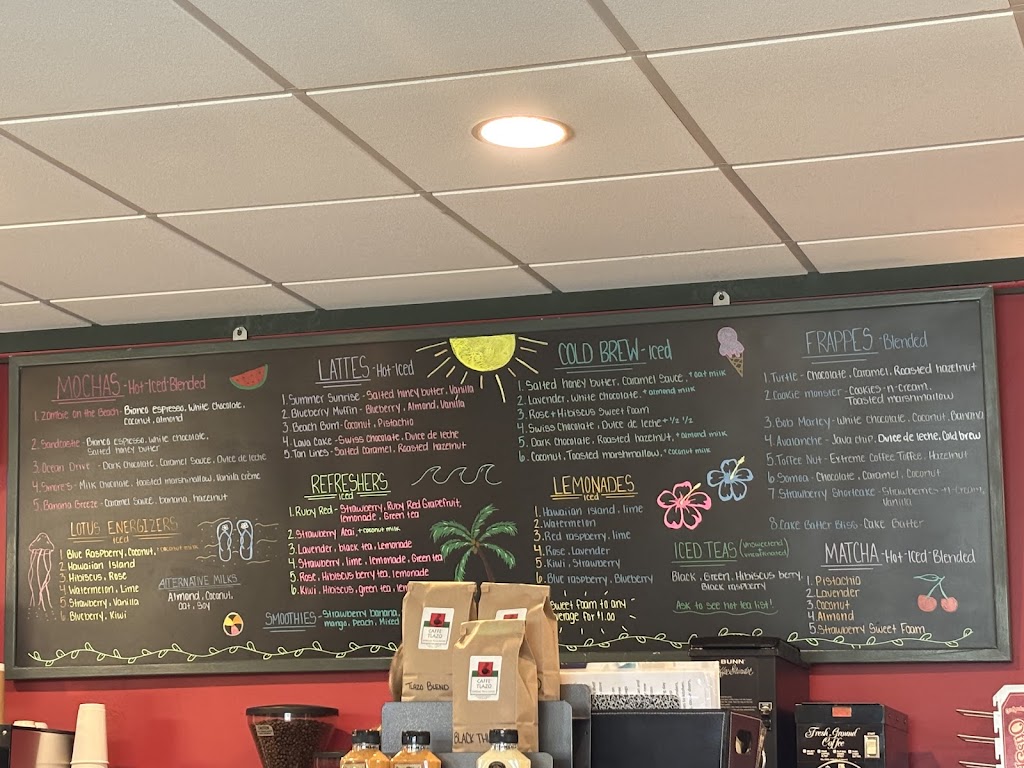 MOCHAS - Hot · Iced · Blended
1. Zombie on the Beach - Bianco Espresso, White Chocolate,
Coconut, Almond
2. Sandcastle - Bianco Espresso, White Chocolate,
Salted honey butter
3. Ocean Drive - Dark Chocolate, Caramel Sauce, Dulce de leche
4. Smores - Milk Chocolate, Toasted marshmallow, Vanilla crème
5. Banana Breeze - Caramel Sauce, banana, hazelnut
LOTUS ENERGIZERS
iced
1 Blue Raspberry, Coconut, + coconut milk
2 Hawaiian Island
3 Hibiscus, Rose
4 Watermelon, Lime
5 Strawberry, Vanilla
6 Blueberry, Kiwi
ALTERNATIVE MILKS
Almond, Coconut,
Oat, Soy
LATTES - Hot · Iced
1. Summer Sunrise - Salted honey butter, Vanilla
2. Blueberry Muffin - Blueberry, Almond, Vanilla
3. Beach Bum - Coconut, Pistachio
4. Lava Cake - Swiss Chocolate, Dulce de leche
5. Tan Lines - Salted Caramel, Roasted hazelnut
REFRESHERS
iced
1. Ruby Red - Strawberry, Ruby Red Grapefruit,
lemonade, Green tea
2. Strawberry Acai, + coconut milk
3. Lavender, black tea, Lemonade
4. Strawberry, lime, lemonade, Green tea
5. Rose, Hibiscus berry tea, lemonade
6. Kiwi, Hibiscus, green tea,
SMOOTHIES - Strawberry banana,
mango, Peach, Mixed
COLD BREW - iced
1. Salted honey butter, Caramel Sauce, + oat milk
2. Lavender, White Chocolate, + almond milk
3. Rose + Hibiscus Sweet Foam
4. Swiss Chocolate, Dulce de leche + ½ ½
5. Dark Chocolate, Roasted hazelnut, + almond milk
6. Coconut, Toasted marshmallow, + coconut milk
LEMONADES
iced
1. Hawaiian Island, lime
2. Watermelon
3. Red raspberry, lime
4. Rose, Lavender
5. Kiwi, Strawberry
6. Blue raspberry, Blueberry
Sweet Foam to any
for $1.00
ICED TEAS (unsweetened)
Black, Green, Hibiscus berry
Black raspberry
Ask to see hot tea list!
FRAPPES - Blended
1. Turtle - Chocolate, Caramel, Roasted hazelnut
2. Cookie monster - Cookies-n-Cream,
Toasted marshmallow
3. Bob Marley - White chocolate, Coconut, Banana
4. Avalanche - Java chip, Dulce de leche, Cold brew
5. Toffee Nut - Extreme Coffee Toffee, Hazelnut
6. Samoa - Chocolate, Caramel, Coconut
7. Strawberry Shortcake - Strawberries-n-Cream,
Vanilla
8. Cake Batter Bliss - Cake Batter
MATCHA - Hot · Iced · Blended
1. Pistachio
2. Lavender
3. Coconut
4. Almond
5. Strawberry Sweet Foam
CAFFE'
TLAZO
TLAZO BLEND
CAFFE'
TLAZO
BLACK
BUNN
Fresh Ground
Coffee